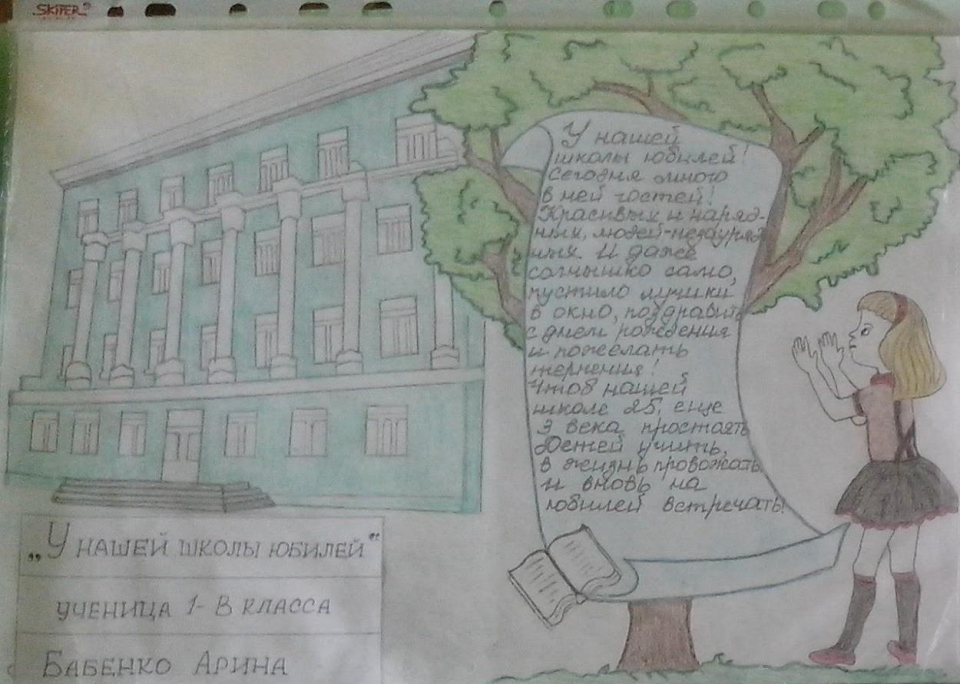 SKIPER
У нашей
школы юбилей!
Сегодня много
в ней гостей!
Красивых и наряд-
ных, людей-незауряд
ных. И даже
солнышко само,
пустило лучики
в окно, поздравить
с днем рождения
и пожелать
терпения!
Чтоб нашей
школе 25, еще
3 века простоять
Детей учить,
в жизнь провожать
и вновь на
юбилей встречать!
„У НАШЕЙ ШКОЛЫ ЮБИЛЕЙ“
УЧЕНИЦА 1-В КЛАССА
БАБЕНКО АРИНА